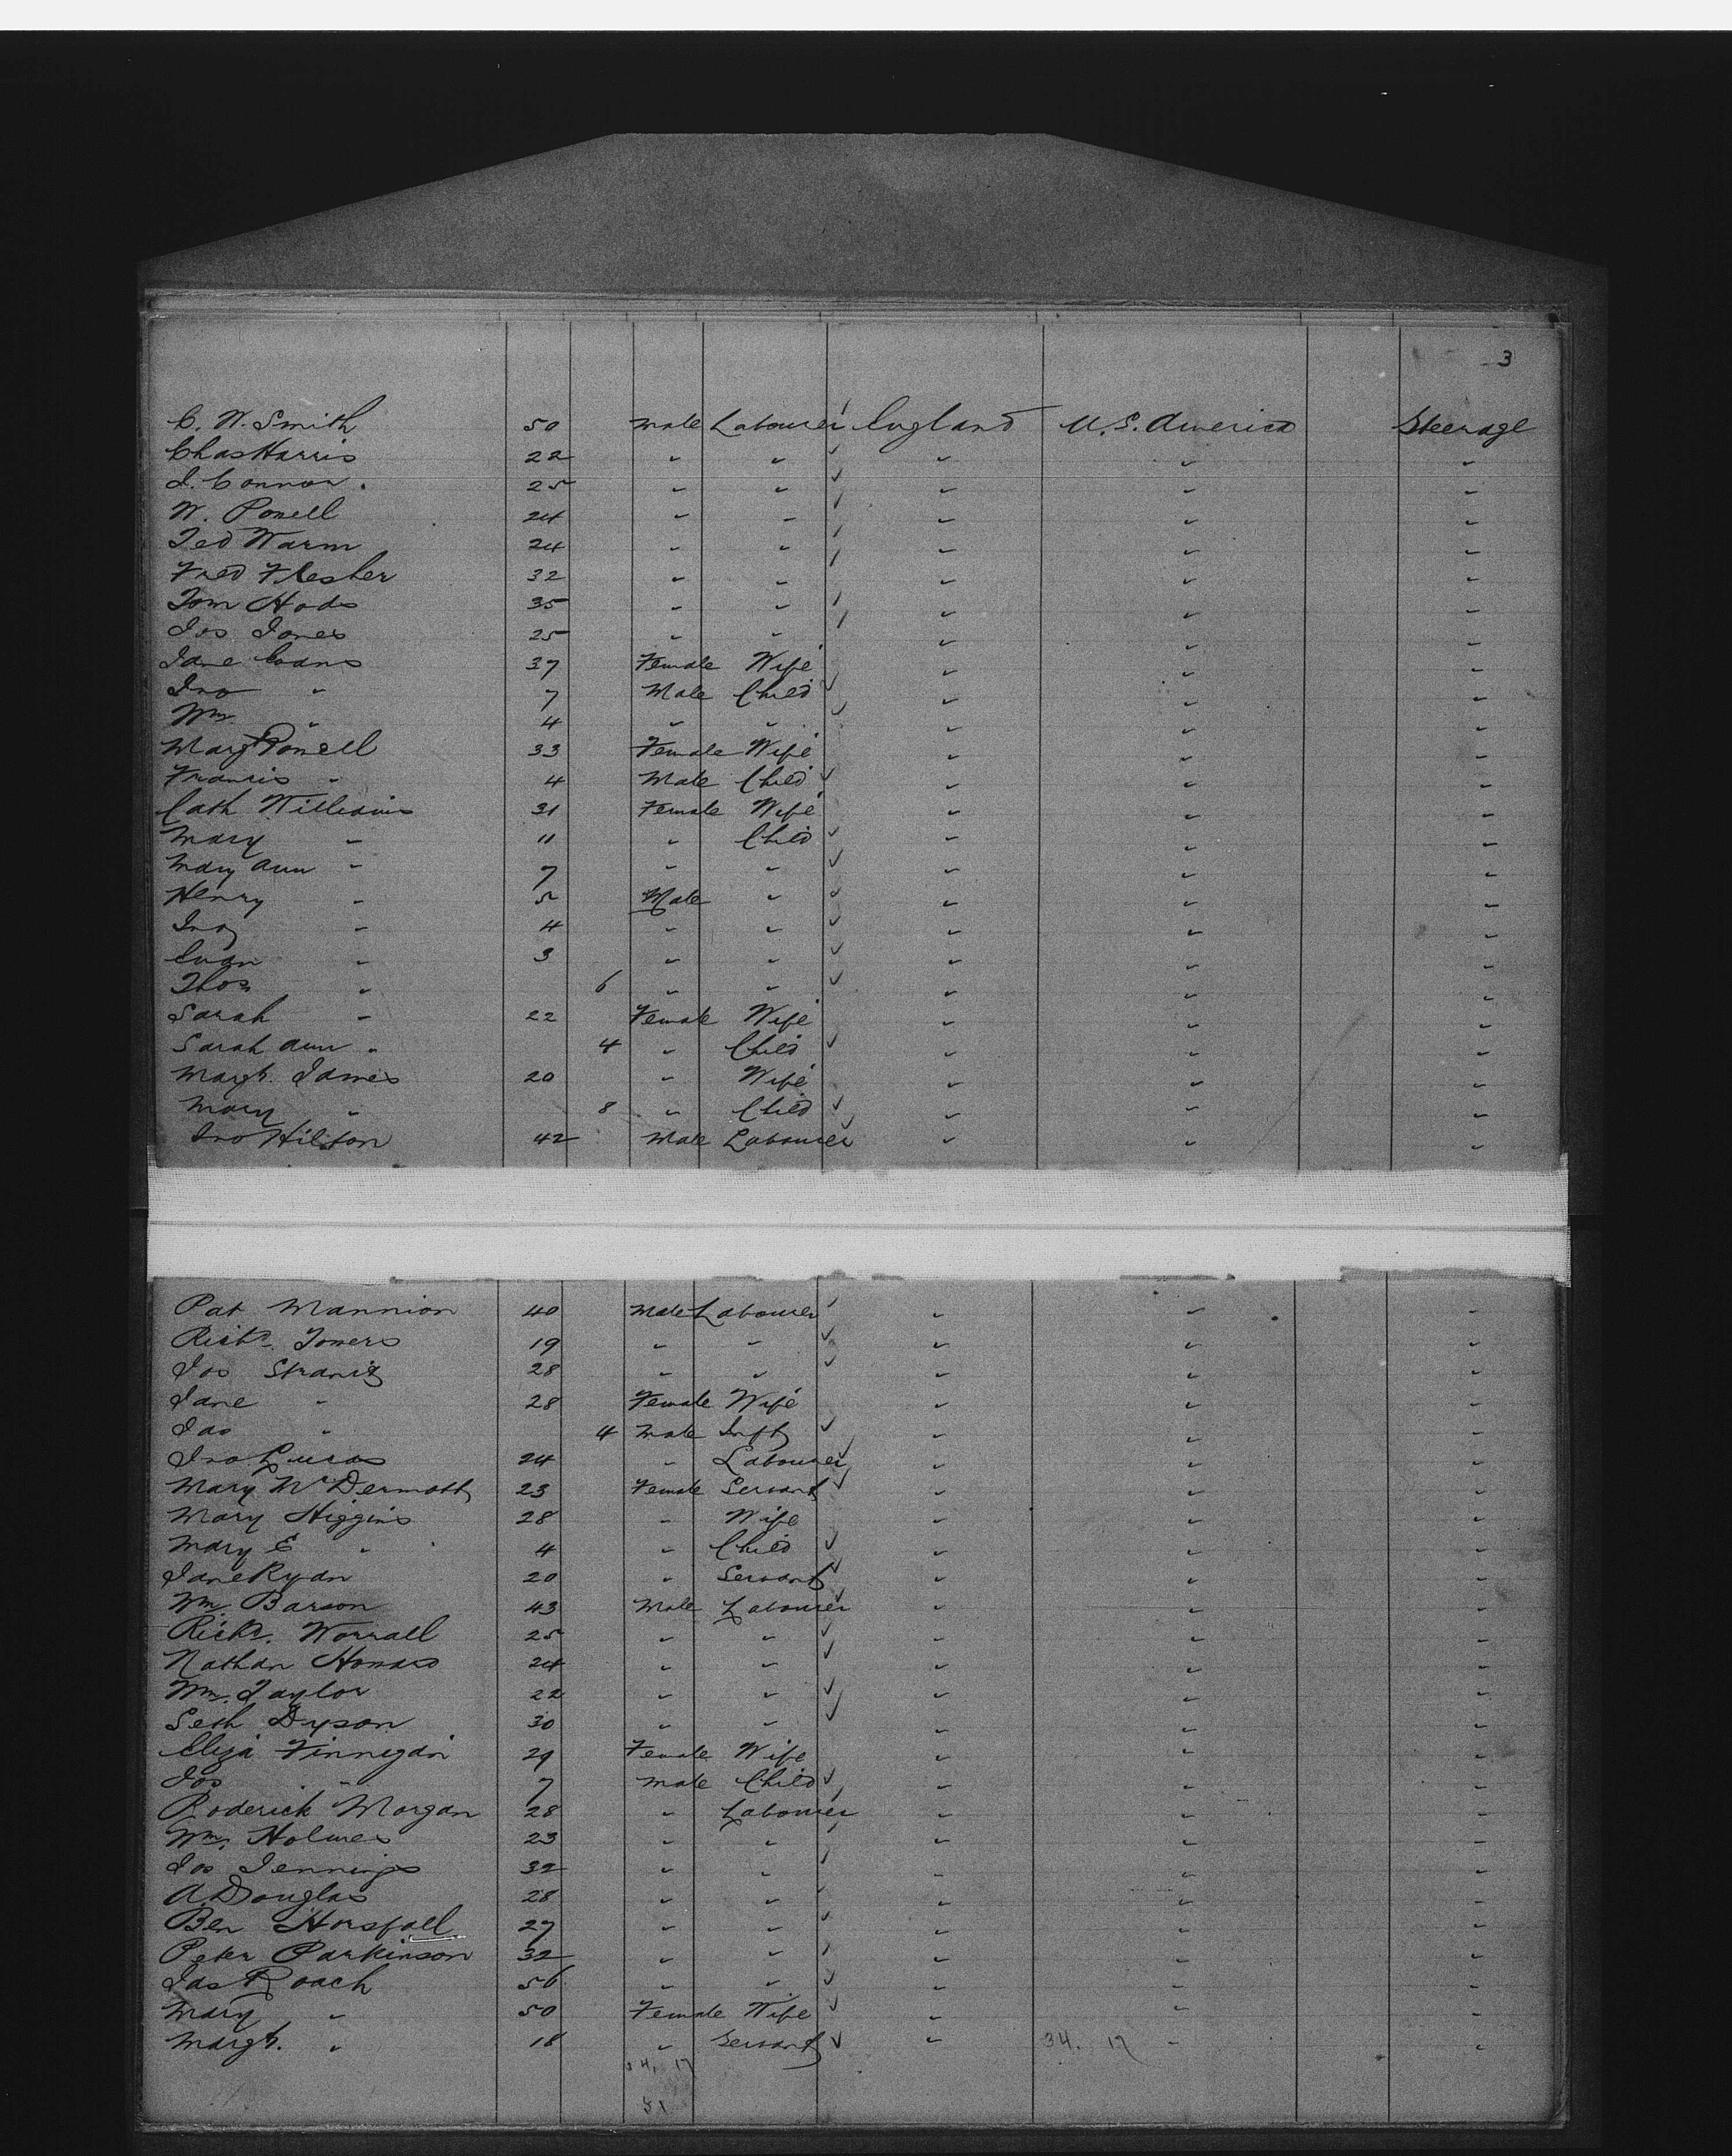 3
C. W. Smith 50 Male Labourer England U.S. America Steerage
Chas Harris 22 " " " " "
J. Connor. 25 " " " " "
W. Powell 24 " " " " "
Ted Warm 24 " " " " "
Fred Flesher 32 " " " " "
Tom Hods 35 " " " " "
Jos Jones 25 " " " " "
Jane Evans 37 Female Wife " " "
Jno " 7 Male Child " " "
Wm " 4 " " " " "
Margt Powell 33 Female Wife " " "
Francis " 4 Male Child " " "
Cath Williams 31 Female Wife " " "
Mary " 11 " Child " " "
Mary Ann " 7 " " " " "
Henry " 5 Male " " " "
Jno " 4 " " " " "
Evan " 3 " " " " "
Thos " 6 " " " " "
Sarah " 22 Female Wife " " "
Sarah Ann " 4 " Child " " "
Margt. James 20 " Wife " " "
Mary " 8 " Child " " "
Jno Hilton 42 Male Labourer " " "
Pat Mannion 40 Male Labourer " " "
Richd. Towers 19 " " " " "
Jos 28 " " " " "
Jane " 28 Female Wife " " "
Jas " 4 Male Inft " " "
Jno Lucas 24 " Labourer " " "
Mary McDermott 23 Female Servant " " "
Mary Higgins 28 " Wife " " "
Mary E " 4 " Child " " "
Jane Ryan 20 " Servant " " "
Wm Barson 43 Male Labourer " " "
Richd. Worrall 25 " " " " "
Nathan Howard 24 " " " " "
Wm. Taylor 22 " " " " "
Seth Dyson 30 " " " " "
Eliza Finnegan 29 Female Wife " " "
Jos " 7 Male Child " " "
Roderick Morgan 28 " Labourer " " "
Wm. Holmes 23 " " " " "
Jos Jennings 32 " " " " "
A. Douglas 28 " " " " "
Ben Horsfall 27 " " " " "
Peter Parkinson 32 " " " " "
Jas Roach 56 " " " " "
Mary " 50 Female Wife " " "
Margt. " 18 " Servant " 34. 17 " "
34. 17
51